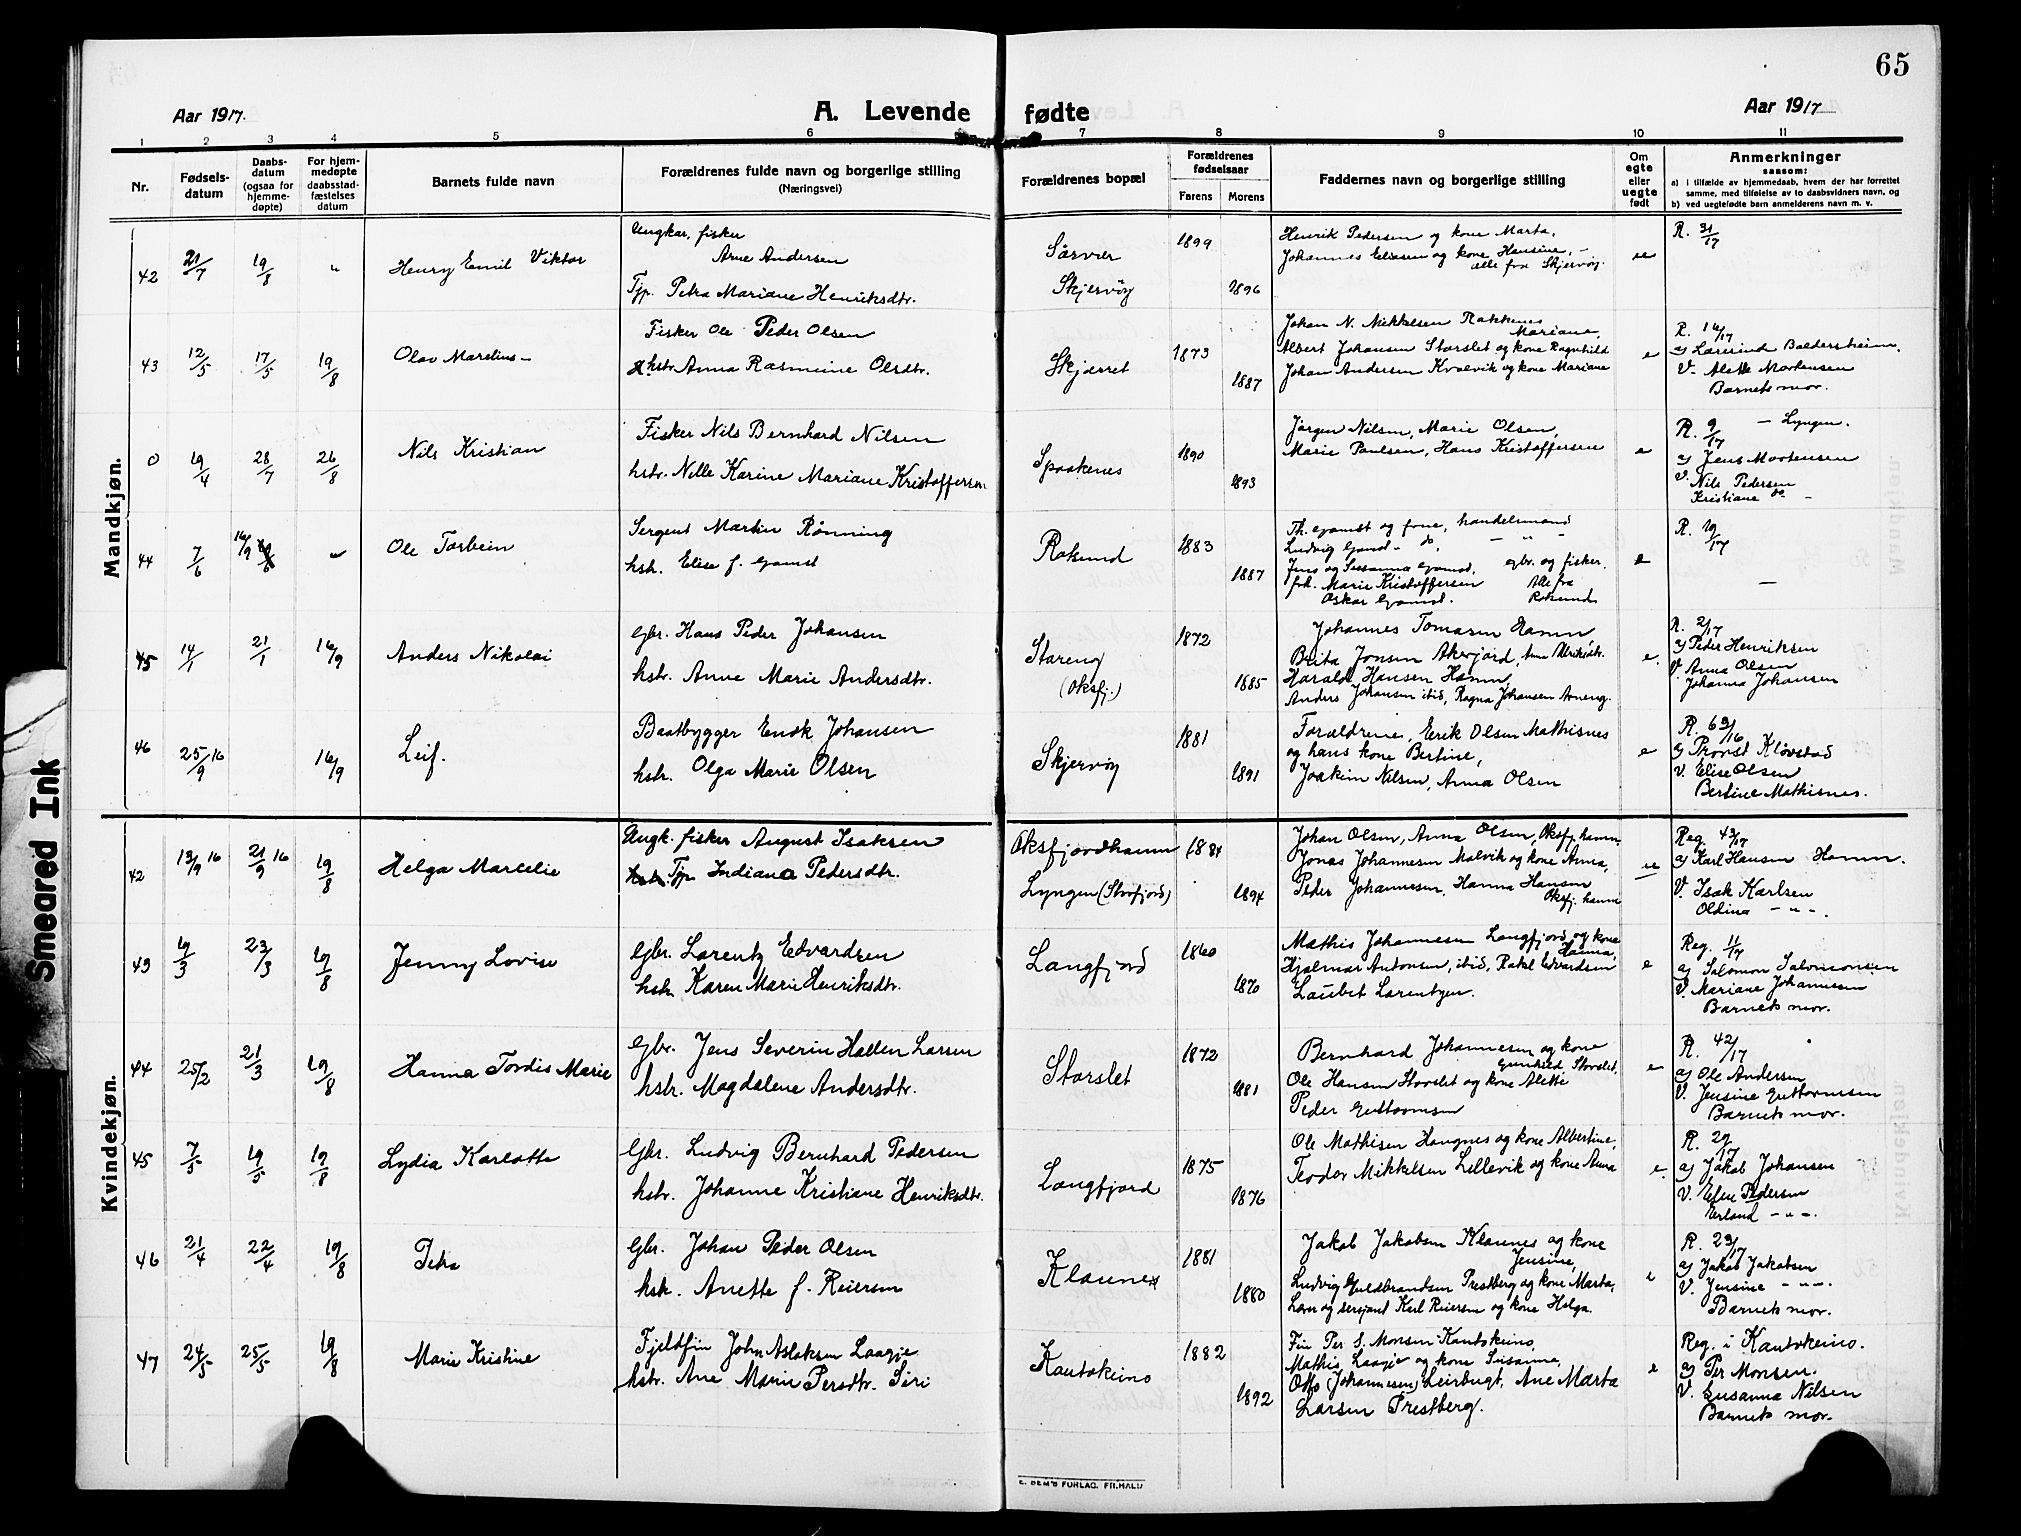 65
Aar 1917.
A. Levende fødte
Aar 1917
1 2 3 4 5 6 7 8 9 10 11
Nr.
Fødsels-datum
Daabs-datum (ogsaa for hjemme-døpte)
For hjem-medøpte daabsstad-fæstelses datum
Barnets fulde navn
Forældrenes fulde navn og borgerlige stilling
(Næringsvei)
Forældrenes bopæl
Forældrenes fødselsaar
Farens Morens
Faddernes navn og borgerlige stilling
Om egte eller uegte født
Anmerkninger
saasom:
a) i tilfælde av hjemmedaab, hvem der har forrettet
samme, med tilføielse av to daabsvidners navn, og
b) ved uegtefødte barn anmelderens navn m. v.
Mandkjøn.
42 21/7 19/8 " Henry Emil Viktor
Ungkar, fisker
Arne Andersen
Tjp. Petra Mariane Henriksdtr.
Sørvær 1899
Skjervøy 1896
Henrik Pedersen og kone Marta,
Johannes Eliasen og kone Hansine, -
alle fra Skjervøy.
ue
R. 31/17
43 12/5 17/5 19/8 Olav Marelius -
Fisker Ole Peder Olsen
hstr. Anna Rasmine Olsdtr.
Skjærret 1873 1887
Johan N. Nikkelsen Rakkenes
Mariane,
Albert Johansen Storslet og kone Ragnhild
Johan Andersen Kvalvik og kone Mariane
e
R. 16/17
a) Lærerinde Baldersheim.
V. Alette Mortensen
Barnets mor.
0 19/4 28/7 26/8 Nils Kristian
Fisker Nils Bernhard Nilsen
hstr. Nille Karine Mariane Kristoffersen
Spaakenes 1890 1893
Jørgen Nilsen, Marie Olsen,
Marie Paulsen, Hans Kristoffersen
e
R. 9/17 - Lyngen.
a) Jens Mortensen
V. Nils Pedersen
Kristiane do -
44 7/6 16/9 Ole Torbein
Sergent Martin Rønning
hstr. Elise f. Gamst
Rotsund 1883 1887
Th. Gamst og frue, handelsmand
Ludvig Gamst - do,
Jens og Susanna Gamst, gbr. og fisker.
frk. Marie Kristoffersen Alle fra
Oskar Gamst. Rotsund
e
R. 19/17
45 14/1 21/1 16/9 Anders Nikolai
Gbr. Hans Peder Johansen
hstr. Anne Marie Andersdtr.
Storeng
(Oksfj.)
1872 1885
Johannes Tomasen Hamn
Brita Jonsen Akerjord, Ane Ulriksdtr.
Harald Hansen Hamn,
Anders Johansen ibid, Ragna Johansen Arneng.
e.
R. 2/17
a) Peder Henriksen
V. Anna Olsen
Johanna Johansen
46 25/9 16 16/9 Leif.
Baatbygger Enok Johansen
hstr. Olga Marie Olsen
Skjervøy 1881 1891
Forældrene, Erik Olsen Mathisnes
og hans kone Bertine,
Joakim Nilsen, Anna Olsen
e
R. 63/16
a) Provst Kløvstad
V. Elise Olsen
Bertine Mathisnes.
Kvindekjøn.
42 13/9 16 21/9 16 19/8 Helga Marcelie
Ungk. fisker August Isaksen
Tjp Indiana Pedersdtr.
Oksfjordhamn 1884
Lyngen (Storfjord) 1894
Johan Olsen, Anna Olsen, Oksfj. hamn
Jonas Johannesen Malvik og kone Anna,
Peder Johannesen, Hanna Hansen
Oksfj. hamn
ue
Reg. 43/17
a) Karl Hansen Hamn.
V. Isak Karlsen
Oldina - " -.
43 19/3 23/3 19/8 Jenny Lovise
Gbr. Lorentz Edvardsen
hstr. Karen Marie Henriksdtr.
Langfjord 1860 1870
Mathis Johannesen Langfjord og kone
Hanna,
Hjalmar Antonsen, ibid, Rakel Edvardsen
Laubet Lorentzen.
e
Reg. 11/17
a) Salomon Salomonsen
V. Mariane Johannesen
Barnets mor.
44 25/2 21/3 19/8 Hanna Tordis Marie
Gbr. Jens Severin Hallen Larsen
hstr. Magdalene Andersdtr.
Storslet 1872 1881
Bernhard Johannesen og kone
Gunhild Storslet,
Ole Hansen Storslet og kone Alette
Peder Guttormsen
e
R. 42/17
a) Ole Andersen
V. Jensine Guttormsen
Barnets mor.
45 7/5 19/5 19/8 Lydia Karlotte
Gbr. Ludvig Bernhard Pedersen
hstr. Johanne Kristiane Henriksdtr.
Langfjord 1875 1876
Ole Mathisen Hangnes og kone Albertine,
Teodor Mikkelsen Lillevik og kone Anna
e.
R. 29/17
a) Jakob Johansen
V. Efen Pedersen
Erland - " -.
46 21/4 22/4 19/8 Petra
Gbr. Johan Peder Olsen
hstr. Anette f. Reiersen
Klaunes 1881 1880
Jakob Jakobsen Klaunes og kone
Jensine,
Ludvig Guldbrandsen Prestberg og kone Marta,
Lærer og sersjant Karl Reiersen og kone Helga.
e
R. 23/17
a) Jakob Jakobsen
V. Jensine - " -.
Barnets mor.
47 24/5 25/5 19/8 Marie Kristine
Fjeldfin John Aslaksen Laagje
hstr. Ane Marie Persdtr. Siri
Kautokeino 1882 1892
Fin Per S. Monsen Kautokeino,
Mathis Laagje og kone Susanna,
Otto (Johannesen) Leirbugt, Ane Marta
Larsen Prestberg.
e
Reg. i Kautokeino.
a) Per Monsen.
V. Susanna Nilsen
Barnets mor.
E. SEM'S FORLAG. FR.HALD
Smeared Ink